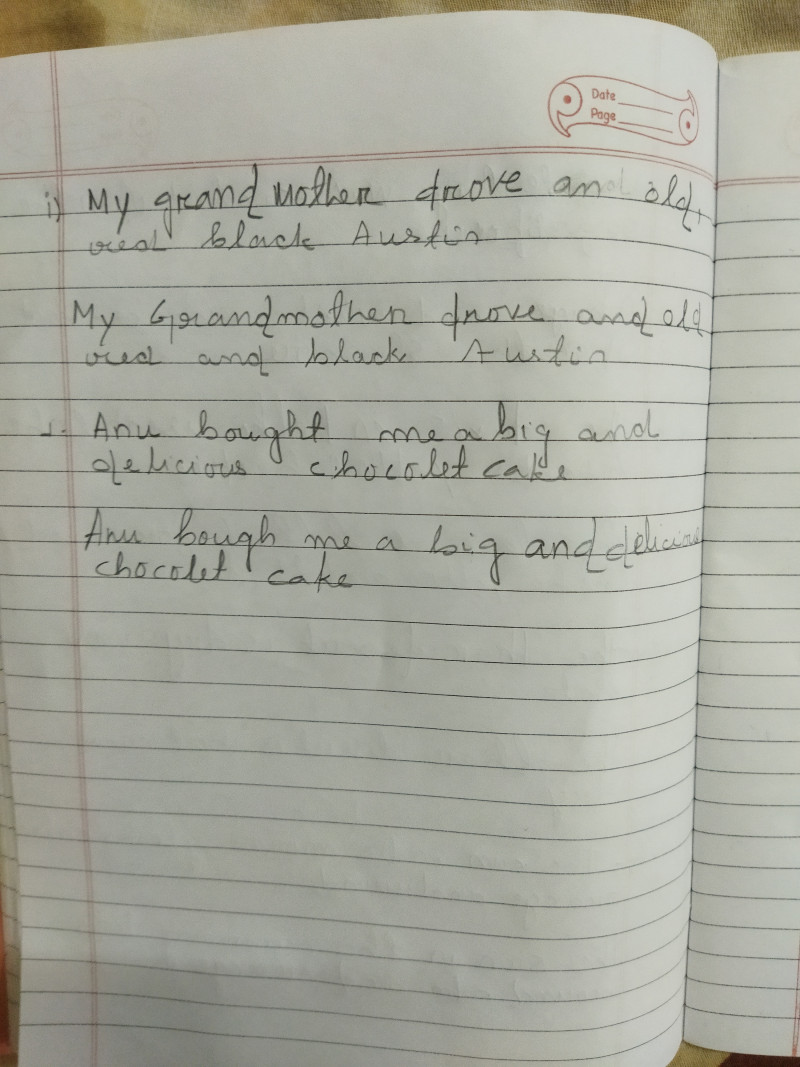 Date
Page
i) My grandmother drove an old,
red black Austin
My Grandmother drove and old
red and black Austin
Anu bought me a big and
delicious chocolet cake
Anu bough me a big and delicious
chocolet cake